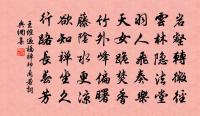 岩壑轉微徑
雲林隱法堂
羽人飛奏樂
天女跪焚香
竹外峰偏曙
藤陰水更涼
欲知禪坐久
行路長春芳
王維過福禪師蘭若